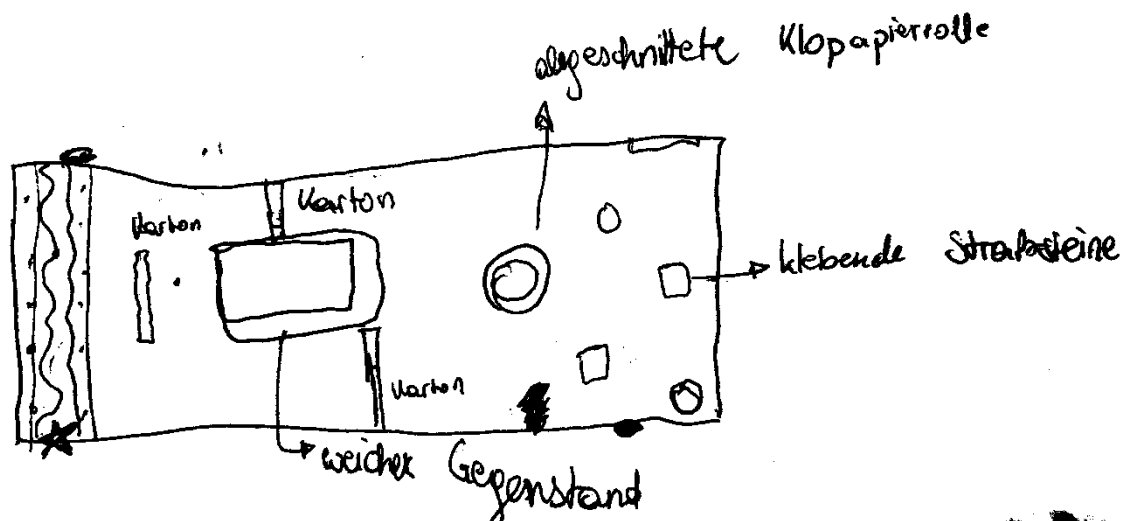 abgeschnittete Klopapierrolle
Karton
Karton
klebende Straßsteine
Karton
weicher Gegenstand